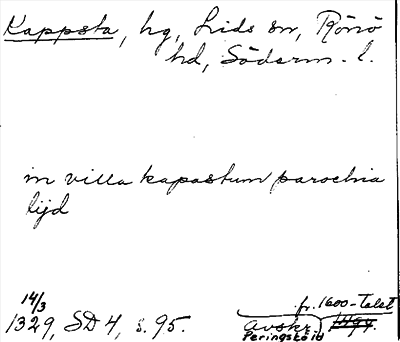 Kappsta, hg, Lids sn, Rönö
hd, Söderm. l.
in villa kapastum parochia
lijd
14/3
1329, SD 4, s. 95.
fr. 1600-talet
Avskr.
Peringskiöld